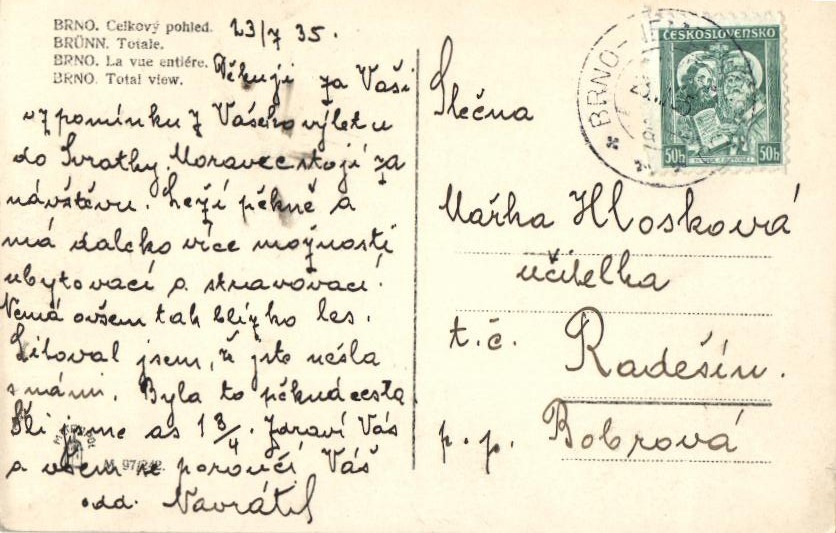 BRNO. Celkový pohled.
BRÜNN. Totale.
BRNO. La vue entiére.
BRNO. Total view.
23/7 35.
Děkuji za Vaši
vzpomínku z Vašeho výletu
do Svratky. Moravec stojí za
návštěvu. Leží pěkně a
má daleko více možností
ubytovací a stravovací.
Nemá ovšem tak blízko les.
Litoval jsem, že jste nešla
s námi. Byla to pěkná cesta
Šli jsme as 1 3/4. Zdraví Vás
a všem se poroučí Váš
odd. Navrátil
M 97242.
Slečna
Mařka Hlosková
učitelka
t. č. Radešín.
p. p. Bobrová
BRNO
ČESKOSLOVENSKO
50h 50h